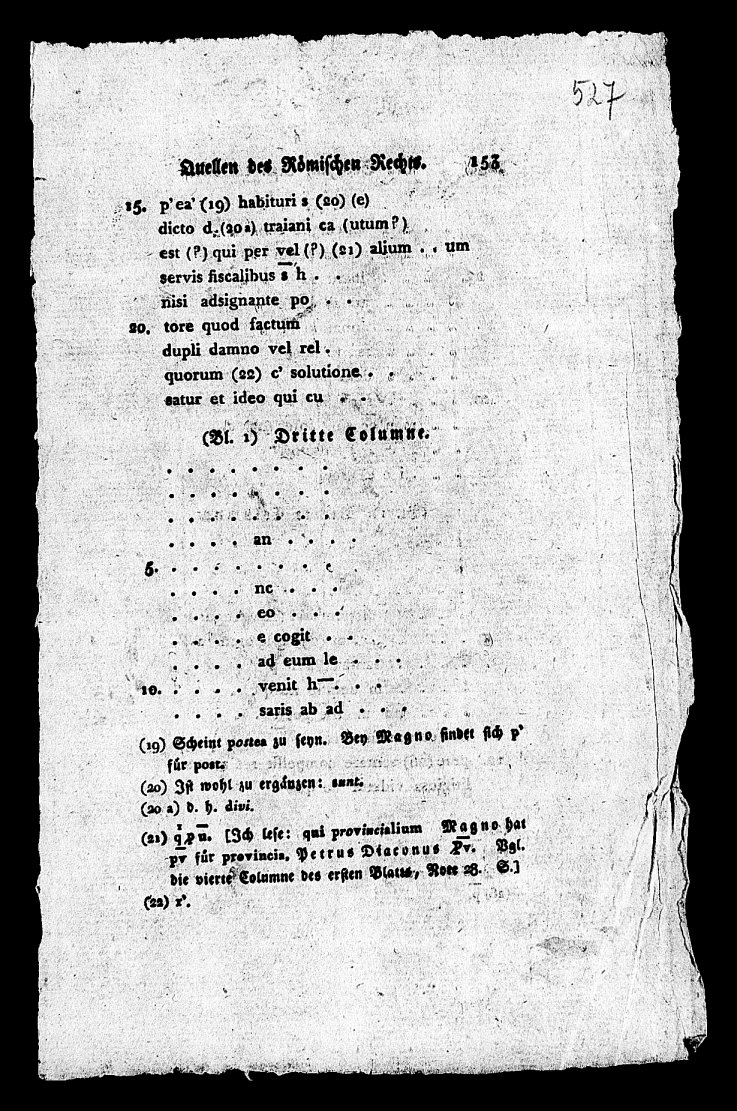 527
Quellen des Römischen Rechts. 153
15. p' ea' (19) habituri s (20) (e)
dicto d. (20a) traiani ca (utum?)
est (?) qui per vel (?) (21) alium . . um
servis fiscalibus s h . .
nisi adsignante po . . .
20. tore quod factum
dupli damno vel rel .
quorum (22) c' solutione . .
satur et ideo qui cu . .
(Bl. 1) Dritte Columne.
. . . . . . . .
. . . . . . . .
. . . . . . . .
. . . . an . . . .
5. . . . . . . . .
. . . . nc . . . .
. . . . eo . . . .
. . . . e cogit . .
. . . . ad eum le . . .
10. . . . . venit h— . . .
. . . . saris ab ad . . .
(19) Scheint postea zu seyn. Bey Magno findet sich p'
für post.
(20) Ist wohl zu ergänzen: sunt.
(20 a) d. h. divi.
(21) q p n. [Ich lese: qui provincialium Magno hat
pv für provincia. Petrus Diaconus Pv. Vgl.
die vierte Columne des ersten Blatts, Note 28. S.]
(22) r'.